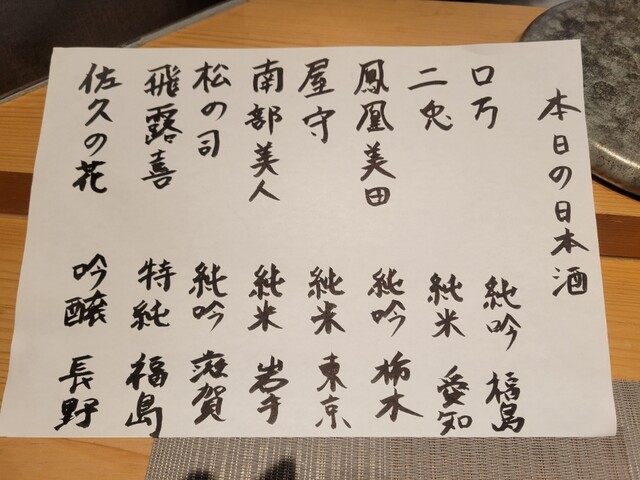 本日の日本酒
ロ万 純吟 福島
二兎 純米 愛知
鳳凰美田 純吟 栃木
屋守 純米 東京
南部美人 純米 岩手
松の司 純吟 滋賀
飛露喜 特純 福島
佐久の花 吟醸 長野